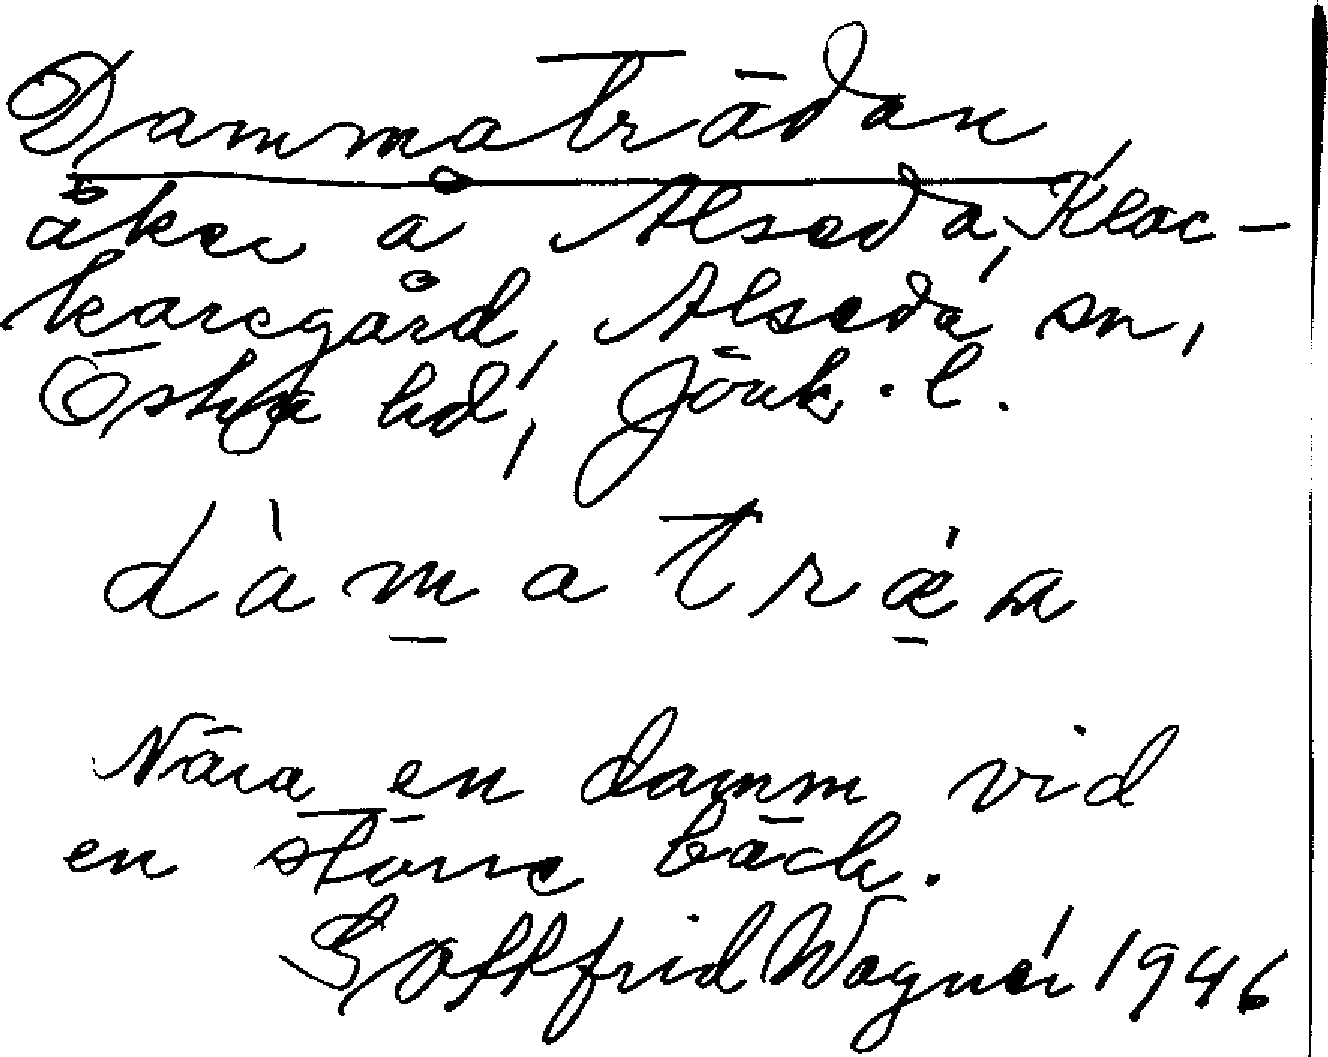 Dammaträdan,
åker å Alseda, Kloc-
karegård, Alseda sn,
Östra hd, Jönk. l.
dàmatrǽa
Nära en damm vid
en större bäck.
Gottfrid Wagnér 1946